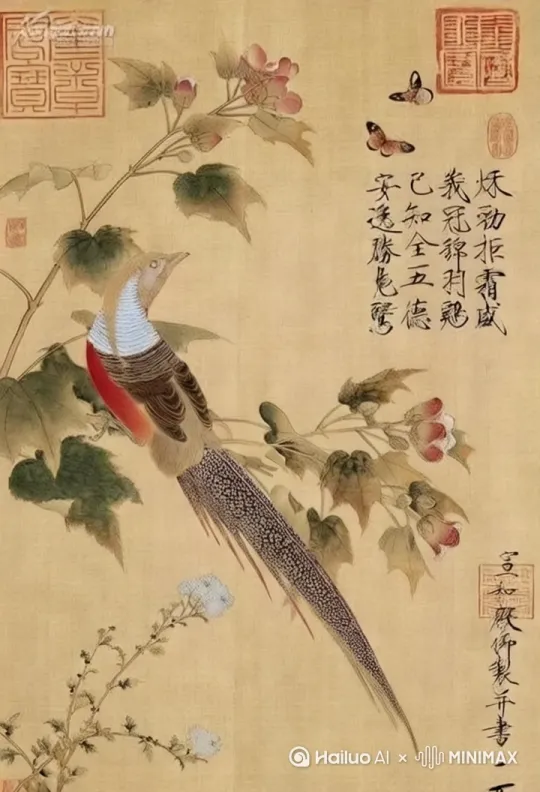 秋勁拒霜盛
峩冠錦羽鷄
已知全五德
安逸勝鳧鷖
宣和殿御製并書
Hailuo AI × MINIMAX